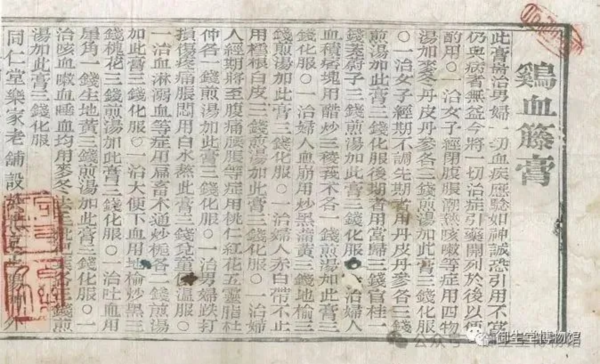 鷄血籐膏
此膏耑治男婦一切血疾應驗如神誠恐引用不宜
仍與病者無益今將一切治症引藥開列於後以便
酌用○一治女子經閉腹脹潮熱咳嗽等症用四物
湯加麥冬丹皮丹參各三錢煎湯加此膏三錢化服
○一治女子經期不調先期者用丹皮丹參各三錢
煎湯加此膏三錢化服後期者用當歸三錢官桂一
錢子三錢煎湯加此膏三錢化服○一治婦人
血積痞塊用醋炒三稜莪朮各一錢煎湯加此膏三
錢化服○一治婦人血崩用炒黑蒲黃三錢地榆三
錢煎湯加此膏三錢化服○一治婦人赤白帶不止
用樗根白皮三錢煎湯加此膏三錢化服○一治婦
人經期將至腹痛脹等症用桃仁紅花五靈脂杜
仲各一錢煎湯加此膏三錢化服○一治男婦跌打
損傷疼痛脹悶用白水熬此膏三錢兌童便溫服○
一治血淋溺血等症用扁畜木通炒梔各一錢煎湯
加此膏三錢化服○一治大便下血用地榆炒黑三
錢槐花三錢煎湯加此膏三錢化服○一治吐血用
犀角一錢生地黃三錢煎湯加此膏三錢化服○一
治咳血嗽血唾血均用麥冬各錢煎
湯加此膏三錢化服
同仁堂樂家老舖設外
御生堂博物馆